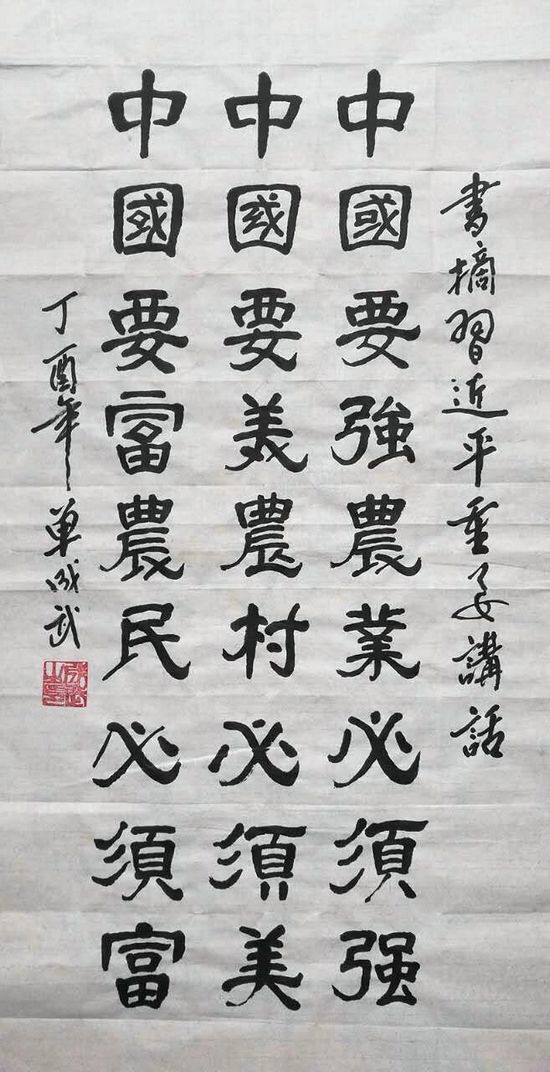 書摘習近平重要講話
中國要強農業必須强
中國要美農村必須美
中國要富農民必須富
丁酉年 單成武